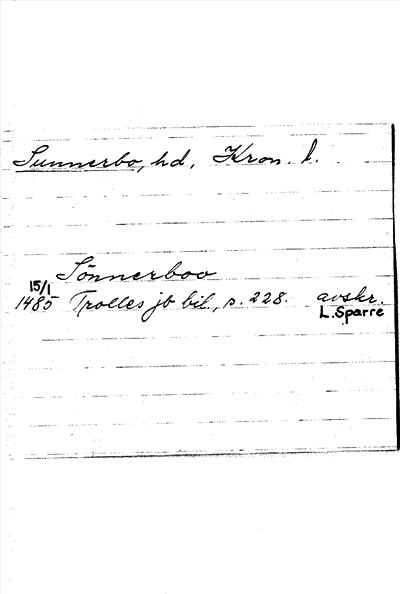 Sunnerbo, hd, Kron. l.
Sönnerboo
15/1
1485 Trolles jb bil., s. 228. avskr.
L. Sparre